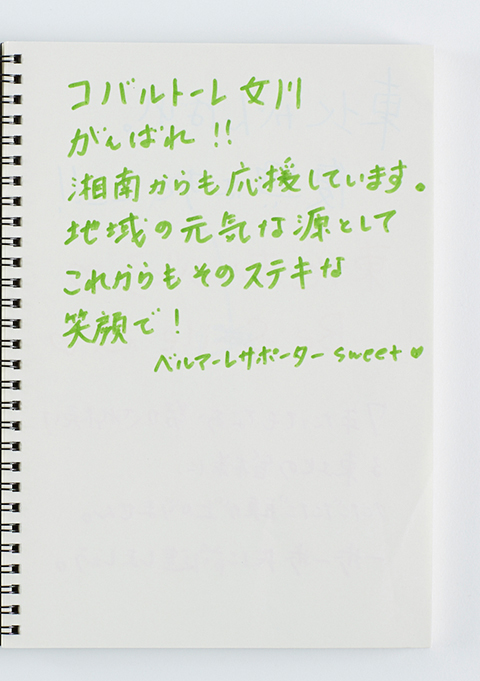 コバルトーレ女川
がんばれ!!
湘南からも応援しています。
地域の元気な源として
これからもそのステキな
笑顔で!
ベルマーレサポーター sweet♡